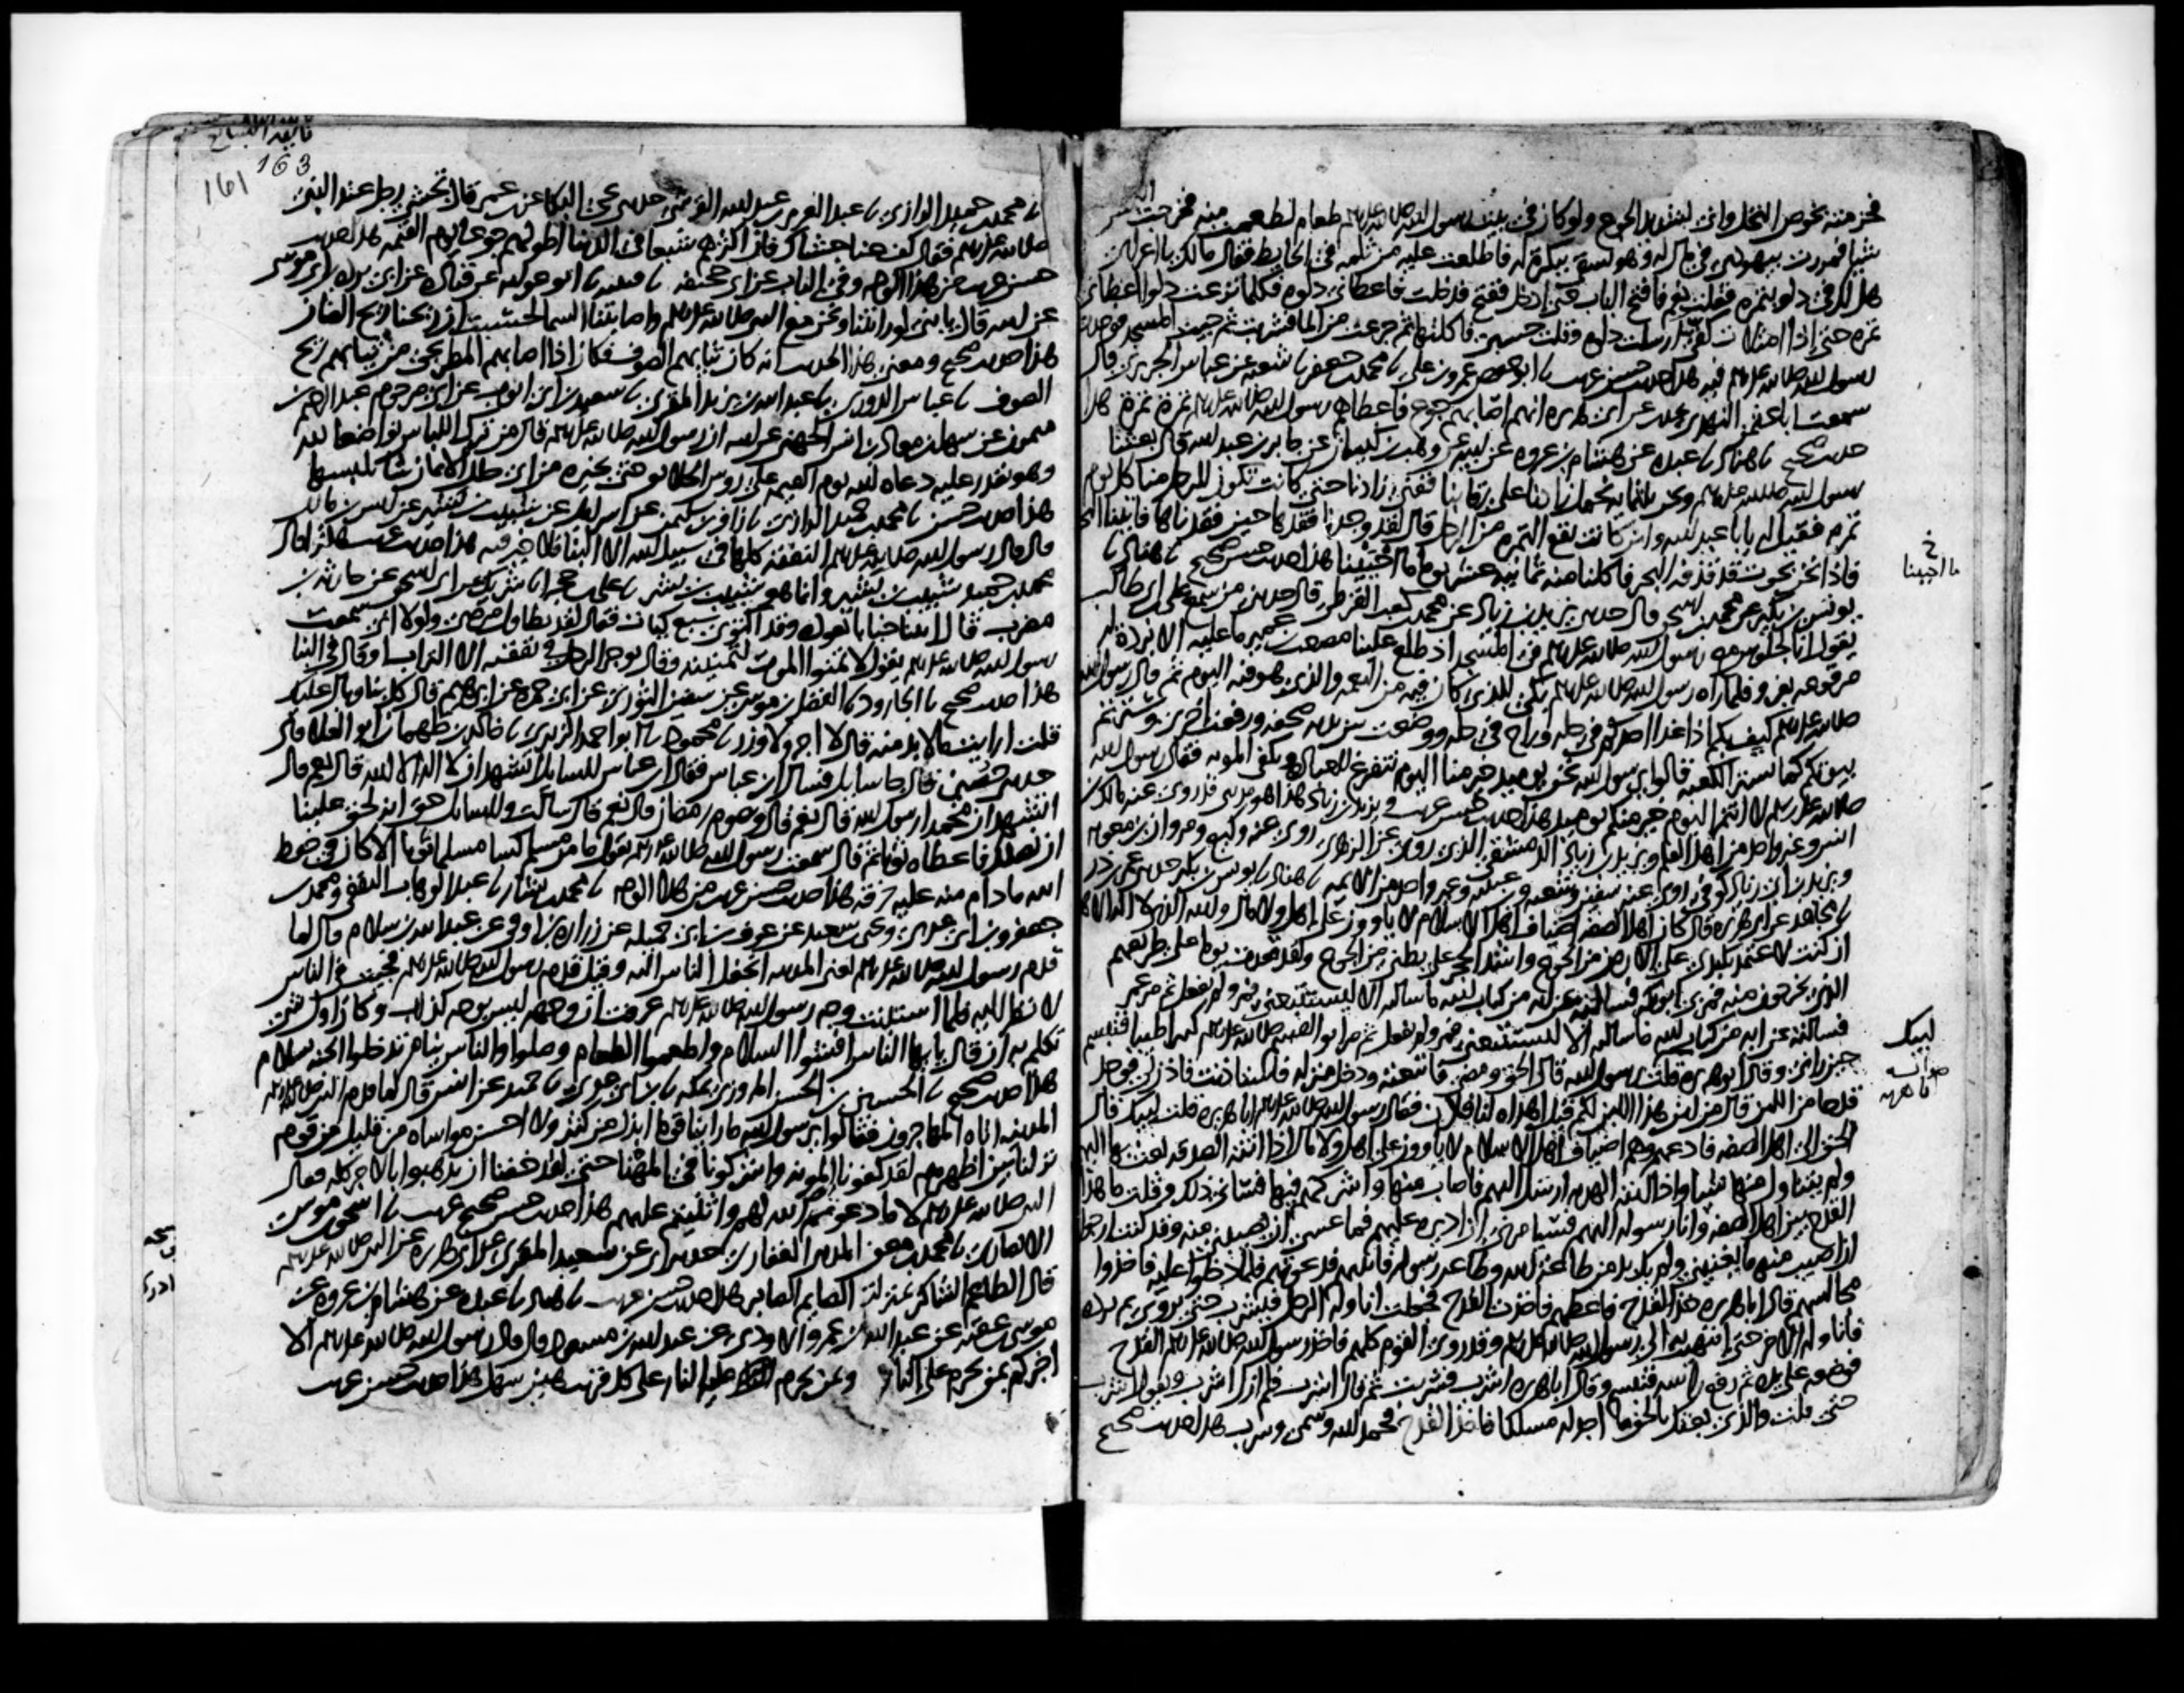 فحزمته بخوص النخل واني لشديد الجوع ولو كان في بيت رسول الله صلى الله عليه وسلم طعام لطعمت منه فخرجت التمس
شيا فمررت بيهودي في مال له وهو يسقي ببكرة له فاطلعت عليه من ثلمه في الحايط فقال مالك يا اعرابي
هل لك في دلو بتمره فقلت نعم فافتح الباب حتى ادخل ففتح فدخلت فاعطاني دلوه فكلما نزعت دلوا اعطاني
تمره حتى اذا امتلات كفي ارسلت دلوه وقلت حسبي فاكلتها ثم جرعت من الما فشربت ثم جيت المسجد فوجدت
رسول الله صلى الله عليه وسلم فيه هذا حديث حسن غريب نا ابو حفص عمرو بن علي نا محمد بن جعفر نا شعبه عن عباس الجريري قال
سمعت ابا عثمن النهدي يحدث عن ابي هريره انهم اصابهم جوع فاعطاهم رسول الله صلى الله عليه وسلم تمرة تمرة هذا
حديث صحيح نا هناد نا عبده عن هشام بن عروه عن ابيه عن وهب بن كيسان عن جابر بن عبد الله قال بعثنا
رسول الله صلى الله عليه وسلم ونحن ثلثمايه نحمل زادنا على رقابنا ففني زادنا حتى كانت تكون للرجل منا كل يوم
تمره فقيل له يابا عبد الله واين كانت تقع التمره من الرجل قال لقد وجدنا فقدها حين فقدناها فاتينا البحر
فاذا نحن بحوت قد قذفه البحر فاكلنا منه ثمانيه عشر يوما ما احببنا هذا حديث حسن صحيح نا هناد نا
يونس بن بكير عن محمد بن اسحق قال حدثني يزيد بن زياد عن محمد بن كعب القرظي قال حدثني من سمع علي بن ابي طالب
يقول انا لجلوس مع رسول الله صلى الله عليه وسلم في المسجد اذ طلع علينا مصعب بن عمير ما عليه الا بردة له
مرقوعه بفرو فلما راه رسول الله صلى الله عليه وسلم بكى للذي كان فيه من النعمه والذي هو فيه اليوم ثم قال رسول الله
صلى الله عليه وسلم كيف بكم اذا غدا احدكم في حله وراح في حله ووضعت بين يديه صحفه ورفعت اخرى وسترتم
بيوتكم كما تستر الكعبه قالوا يرسول الله نحن يوميذ خير منا اليوم نتفرغ للعباده ونكفى المونه فقال رسول الله
صلى الله عليه وسلم لا انتم اليوم خير منكم يوميذ هذا حديث حسن غريب ويزيد بن زياد هذا هو مديني قد روى عنه مالك بن
انس وغير واحد من اهل العلم ويزيد بن زياد الدمشقي الذي روى عن الزهري روى عنه وكيع ومروان بن معويه
ويزيد بن ابي زياد كوفي روى عنه سفين وشعبه وابن عيينه وغير واحد من الايمه نا هناد نا يونس بن بكير حدثني عمر بن ذر
نا مجاهد عن ابي هريره قال كان اهل الصفه اضياف اهل الاسلام لا ياوون على اهل ولا مال والله الذي لا اله الا هو
ان كنت لاعتمد بكبدي على الارض من الجوع واشد الحجر على بطني من الجوع ولقد قعدت يوما على طريقهم
الذي يخرجون منه فمر بي ابو بكر فسالته عن ايه من كتاب الله ما سالته الا ليستتبعني فمر ولم يفعل ثم مر عمر
فسالته عن ايه من كتاب الله ما سالته الا ليستتبعني فمر ولم يفعل ثم مر ابو القسم صلى الله عليه وسلم فتبسم
حين راني وقال ابو هريره قلت لبيك رسول الله قال الحق ومضى فاتبعته ودخل منزله فاستاذنت فاذن لي فوجد
قدحا من اللبن قال من اين هذا اللبن لكم قيل اهداه لنا فلان فقال رسول الله صلى الله عليه وسلم ابا هريره قلت لبيك قال
الحق الى اهل الصفه فادعهم وهم اضياف اهل الاسلام لا ياوون على اهل ولا مال اذا اتته الصدقه بعث بها اليهم
ولم يتناول منها شيا واذا اتته الهديه ارسل اليهم فاصاب منها واشركهم فيها فساني ذلك وقلت ما هذا
القدح بين اهل الصفه وانا رسوله اليهم فسيامرني ان اديره عليهم فما عسى ان يصيبني منه وقد كنت ارجوا
ان اصيب منه ما يغنيني ولم يك بد من طاعه الله وطاعه رسوله فاتيتهم فدعوتهم فلما دخلوا عليه فاخذوا
مجالسهم قال ابا هريره خذ القدح فاعطهم فاخذت القدح فجعلت اناوله الرجل فيشرب حتى يروى ثم يرده
فاناوله الاخر حتى انتهيت الى رسول الله صلى الله عليه وسلم وقد روي القوم كلهم فاخذ رسول الله صلى الله عليه وسلم القدح
فوضعه على يده ثم رفع راسه فتبسم وقال ابا هريره اشرب فشربت ثم قال اشرب فلم ازل اشرب ويقول اشرب
حتى قلت والذي بعثك بالحق ما اجد له مسلكا فاخذ القدح فحمد الله وسمى وشرب هذا حديث صحيح
خ
ما احببنا
لبيك
ابا هريره
163
161
نا محمد بن حميد الرازي نا عبد العزيز بن عبد الله القرشي حدثني يحيى البكا عن ابن عمر قال تجشى رجل عند النبي
صلى الله عليه وسلم فقال كف عنا جشاك فان اكثرهم شبعا في الدنيا اطولهم جوعا يوم القيمه هذا حديث
حسن غريب من هذا الوجه وفي الباب عن ابي جحيفه نا قتيبه نا ابو عوانه عن قتاده عن ابي برده بن ابي موسى
عن ابيه قال يا بني لو رايتنا ونحن مع النبي صلى الله عليه وسلم واصابتنا السما لحسبت ان ريحنا ريح الضان
هذا حديث صحيح ومعنى هذا الحديث انه كان ثيابهم الصوف فكان اذا اصابهم المطر يجي من ثيابهم ريح
الصوف نا عباس الدوري نا عبد الله بن يزيد المقري نا سعيد بن ابي ايوب عن ابي مرحوم عبد الرحيم بن
ميمون عن سهل بن معاذ بن انس الجهني عن ابيه ان رسول الله صلى الله عليه وسلم قال من ترك اللباس تواضعا لله
وهو يقدر عليه دعاه الله يوم القيمه على روس الخلايق حتى يخيره من اي حلل الايمان شا يلبسها
هذا حديث حسن نا محمد بن حميد الرازي نا زافر بن سليمن عن اسرايل عن شبيب بن بشير عن انس بن مالك
قال قال رسول الله صلى الله عليه وسلم النفقه كلها في سبيل الله الا البنا فلا خير فيه هذا حديث غريب هكذا قال
محمد بن حميد شبيب بن بشير وانما هو شبيب بن بشر نا علي بن حجر انا شريك عن ابي اسحق عن حارثه بن
مضرب قال اتينا خبابا نعوده وقد اكتوى سبع كيات فقال لقد تطاول مرضي ولولا اني سمعت
رسول الله صلى الله عليه وسلم يقول لا تمنوا الموت لتمنيته وقال يوجر الرجل في نفقته الا التراب او قال في البنا
هذا حديث صحيح نا الجارود نا الفضل بن موسى عن سفين الثوري عن ابي حمزه عن ابرهيم قال كل بنا وبال عليك
قلت ارايت ما لا بد منه قال لا اجر ولا وزر نا محمود نا ابو احمد الزبيري نا خالد بن طهمان ابو العلا قال
حدثني حصين قال جا سايل فسال ابن عباس فقال ابن عباس للسايل اتشهد ان لا اله الا الله قال نعم قال
اتشهد ان محمدا رسول الله قال نعم قال وتصوم رمضان قال نعم قال سالت وللسايل حق انه لحق علينا
ان نصلك فاعطاه ثوبا ثم قال سمعت رسول الله صلى الله عليه وسلم يقول ما من مسلم كسا مسلما ثوبا الا كان في حفظ
الله ما دام منه عليه خرقه هذا حديث حسن غريب من هذا الوجه نا محمد بن بشار نا عبد الوهاب الثقفي ومحمد بن
جعفر وابن ابي عدي ويحيى بن سعيد عن عوف بن ابي جميله عن زراره بن اوفى عن عبد الله بن سلام قال لما
قدم رسول الله صلى الله عليه وسلم يعني المدينه انجفل الناس اليه وقيل قدم رسول الله صلى الله عليه وسلم فجيت في الناس
لانظر اليه فلما استثبت وجه رسول الله صلى الله عليه وسلم عرفت ان وجهه ليس بوجه كذاب وكان اول شي
تكلم به ان قال يا ايها الناس افشوا السلام واطعموا الطعام وصلوا والناس نيام تدخلوا الجنه بسلام
هذا حديث صحيح نا الحسين بن الحسن المروزي بمكه نا ابن ابي عدي نا حميد عن انس قال لما قدم النبي صلى الله عليه وسلم
المدينه اتاه المهاجرون فقالوا يرسول الله ما راينا قوما ابذل من كثير ولا احسن مواساه من قليل من قوم
نزلنا بين اظهرهم لقد كفونا المونه واشركونا في المهنا حتى لقد خفنا ان يذهبوا بالاجر كله فقال
النبي صلى الله عليه وسلم لا ما دعوتم الله لهم واثنيتم عليهم هذا حديث حسن صحيح غريب نا اسحق بن موسى
الانصاري نا محمد بن معن المدني الغفاري حدثني ابي عن سعيد المقبري عن ابي هريره عن النبي صلى الله عليه وسلم
قال الطاعم الشاكر بمنزلة الصايم الصابر هذا حديث حسن غريب نا هناد نا عبده عن هشام بن عروه عن
موسى بن عقبه عن عبد الله بن عمرو الاودي عن عبد الله بن مسعود قال قال رسول الله صلى الله عليه وسلم الا
اخبركم بمن يحرم على النار وبمن يحرم عليه النار على كل قريب هين سهل هذا حديث حسن غريب